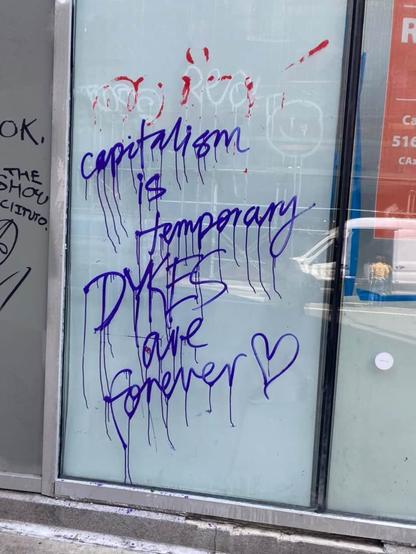 OK.
THE
SHOW
capitalism
is
temporary
DYKES
are
forever
R
Ca
516